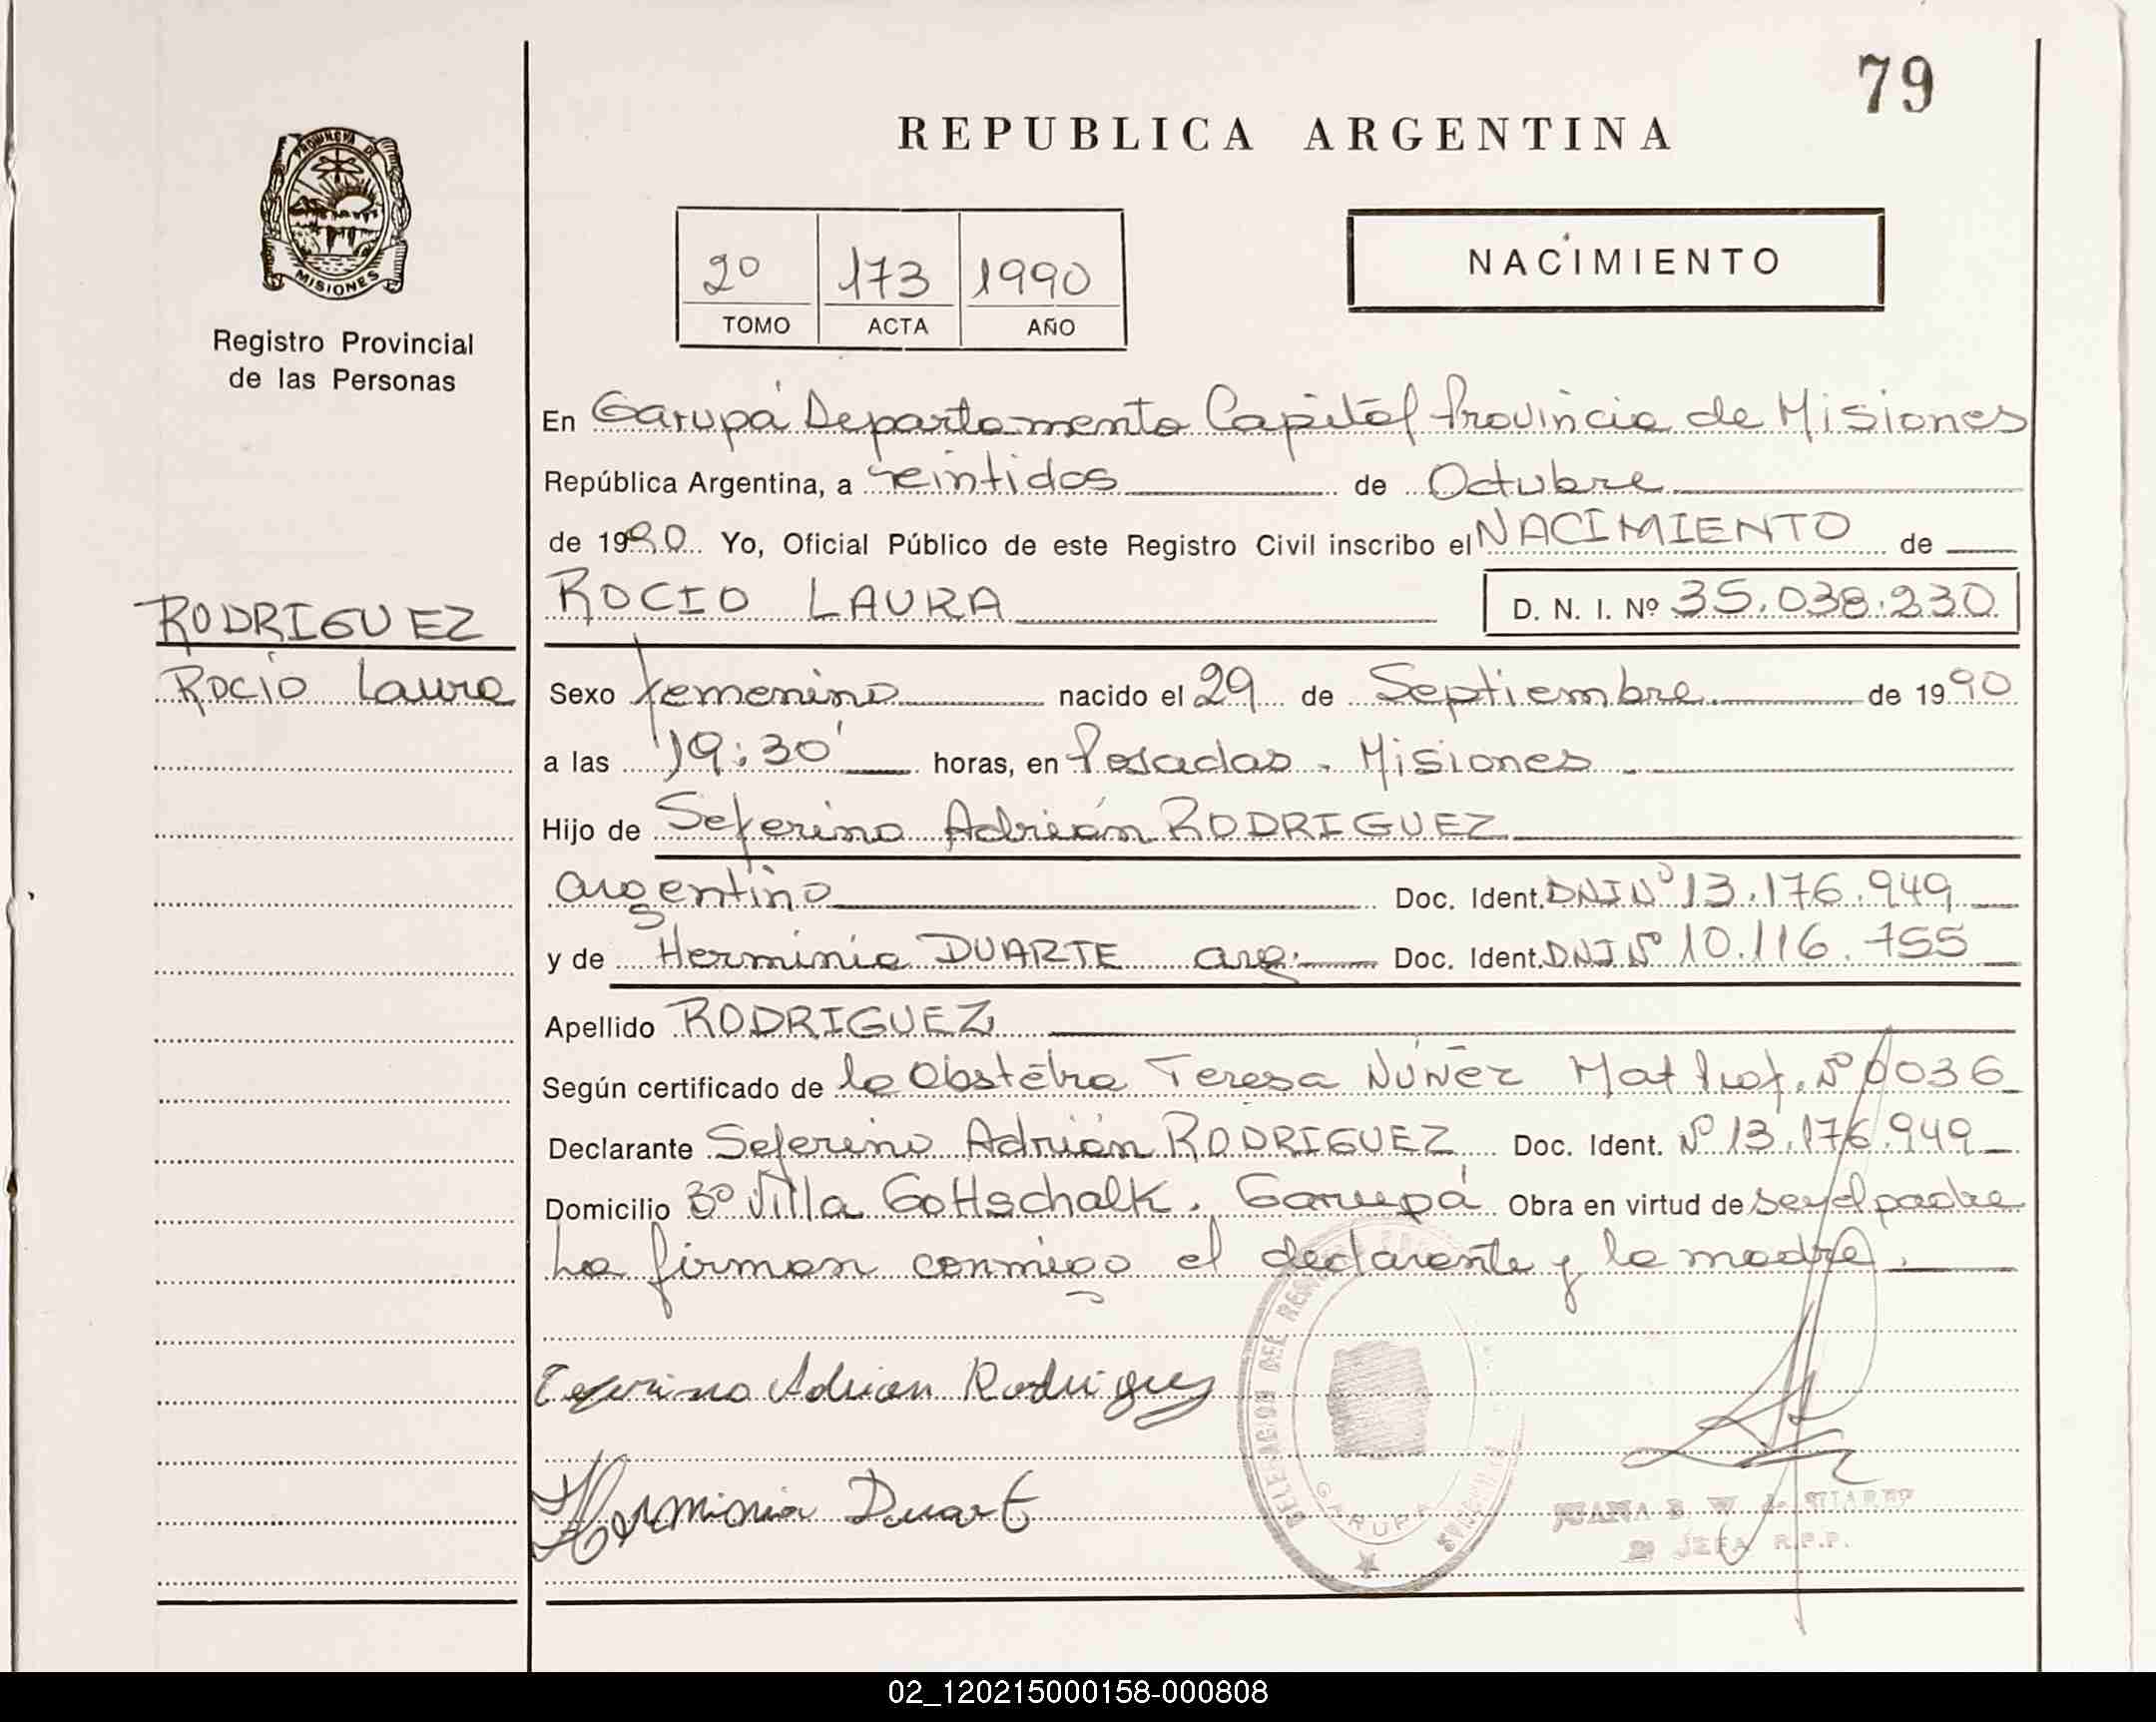 79
REPUBLICA ARGENTINA
PROVINCIA DE
MISIONES
Registro Provincial
de las Personas
2º 173 1990
TOMO ACTA AÑO
NACIMIENTO
En Garupá Departamento Capital Provincia de Misiones
República Argentina, a veintidos de Octubre
de 1990 Yo, Oficial Público de este Registro Civil inscribo el NACIMIENTO de
ROCIO LAURA D. N. I. Nº 35.038.230
RODRIGUEZ
Rocio Laura
Sexo femenino nacido el 29 de Septiembre de 1990
a las 19:30' horas, en Posadas - Misiones
Hijo de Seferino Adrián RODRIGUEZ
argentino Doc. Ident. DNI Nº 13.176.949
y de Herminia DUARTE arg. Doc. Ident. DNI Nº 10.116.755
Apellido RODRIGUEZ
Según certificado de la Obstétra Teresa Núñez Mat Prof. Nº 0036
Declarante Seferino Adrián RODRIGUEZ Doc. Ident. Nº 13.176.949
Domicilio Bº Villa Gottschalk. Garupá Obra en virtud de ser el padre
La firman conmigo el declarante y la madre.
Ceferino Adrian Rodriguez
Herminia Duarte
DELEGACION DEL
GARUPA
JUANA B. W. de SUAREZ
JEFA R.P.P.
02_120215000158-000808